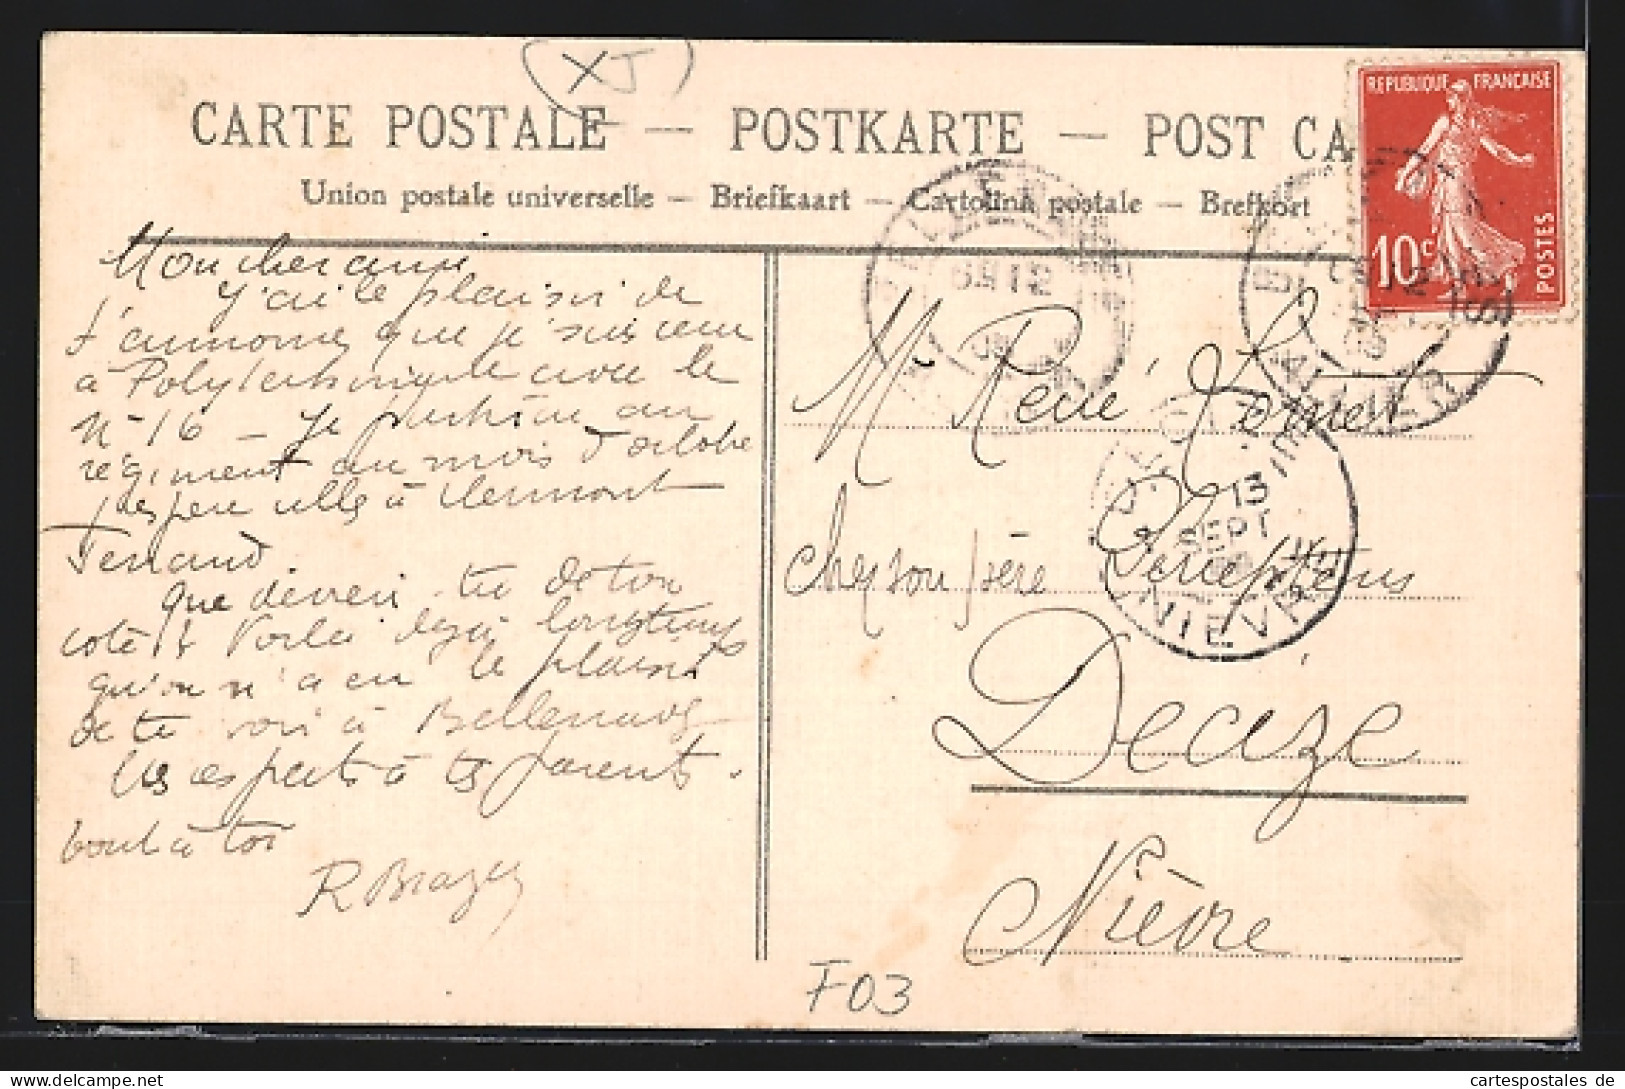 (XJ)
CARTE POSTALE — POSTKARTE — POST CA
Union postale universelle — Briefkaart — Cartolina postale — Brefkort
REPUBLIQUE FRANÇAISE
10c
POSTES
Mon cher ami
j'ai le plaisir de
t'annoncer que je suis reçu
à Polytechnique avec le
N° 16 — Je au
régiment au mois d'octobre
j'espère à Clermont
Ferrand
Que deviens tu de ton
côté? Voila déjà longtemps
qu'on n'a eu le plaisir
de te voir à Bellenaves
Mes respects à tes parents.
tout à toi
R Brazey
Mr René
chez son père
Decize
Nièvre
BELLENAVES
ALLIER
13
SEPT
NIEVRE
F03
cartespostales de